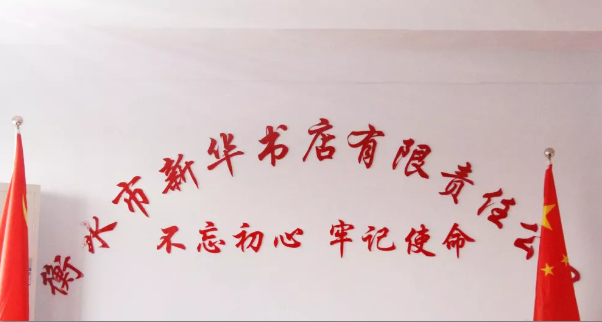 衡水市新华书店有限责任公
不忘初心 牢记使命